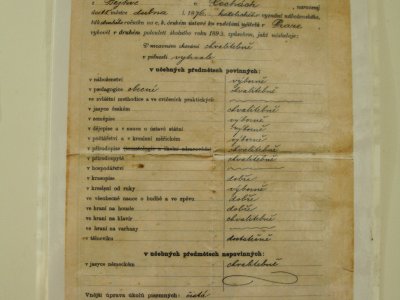 narozený
dubna 1876, katolického vyznání náboženského,
roč­níku na c. k. českém ústavě ku vzdělání učitelů v Praze
v druhém polouletí školního roku 1895 způsobem, jaký následuje:
V mravném chování chvalitebně
v pilnosti vytrvale
v učebných předmětech povinných:
v náboženství výborně
v pedagogice obecné chvalitebně
ve speciální methodice a ve cvičeních praktických
v jazyce českém chvalitebně
v zeměpise výborně
v dějepise a v nauce o ústavě státní výborně
v počtářství a v kreslení měřickém výborně
v přírodopise chvalitebně
v přírodozpytě chvalitebně
v hospodářství
v krasopise dobře
v kreslení od ruky výborně
ve všeobecné nauce o hudbě a ve zpěvu dobře
ve hraní na housle dobře
ve hraní na klavír chvalitebně
ve hraní na varhany
ve tělocviku dostatečně
v učebných předmětech nepovinných:
v jazyce německém chvalitebně
Vnější úprava úkolů písemných: čistá